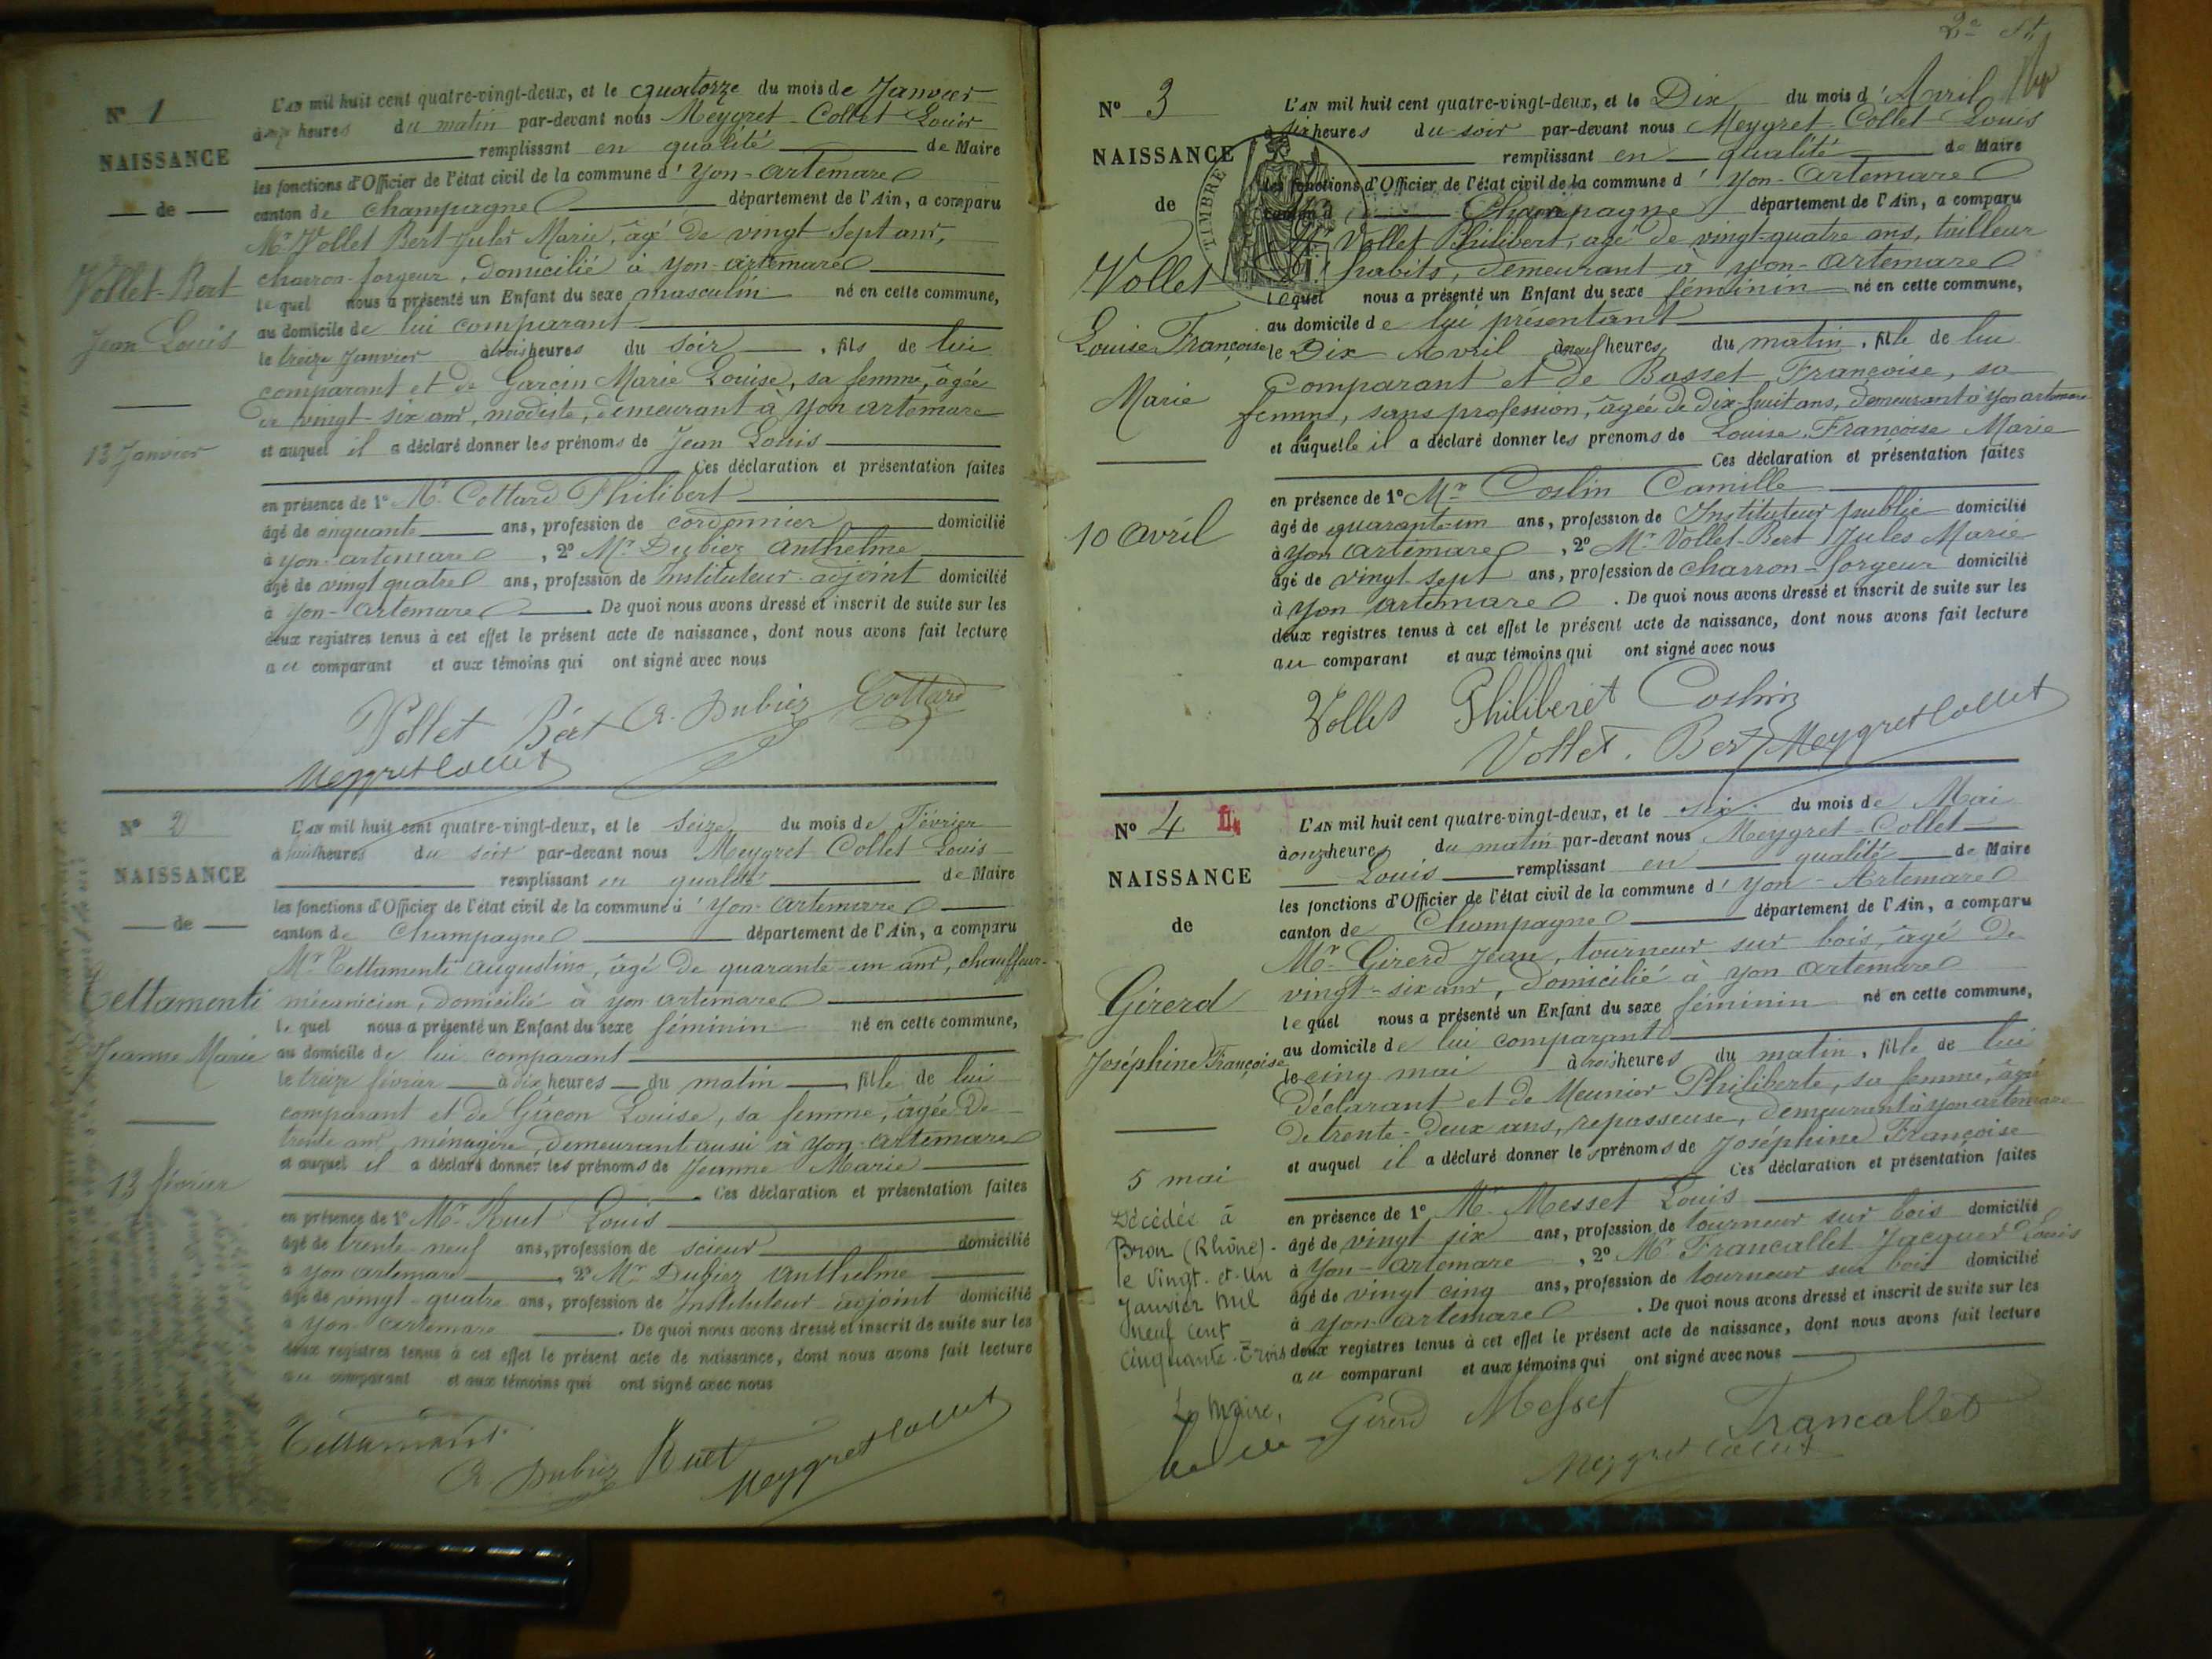 N° 1
NAISSANCE
de
Vollet-Bert
Jean Louis
13 Janvier
L'AN mil huit cent quatre-vingt-deux, et le quatorze du mois de Janvier
à onze heures du matin par-devant nous Meygret-Collet Louis
remplissant en qualité de Maire
les fonctions d'Officier de l'état civil de la commune d' Yon-Artemare
canton de Champagne département de l'Ain, a comparu
Mr Vollet Bert Jules Marie, âgé de vingt sept ans,
charron-forgeur, domicilié à Yon-Artemare
lequel nous a présenté un Enfant du sexe masculin né en cette commune,
au domicile de lui comparant
le treize Janvier à trois heures du soir, fils de lui
comparant et de Garcin Marie Louise, sa femme, âgée
de vingt-six ans, modiste, demeurant à Yon artemare
et auquel il a déclaré donner les prénoms de Jean Louis
Ces déclaration et présentation faites
en présence de 1° Mr Cottard Philibert
âgé de cinquante ans, profession de cordonnier domicilié
à Yon-artemare, 2° Mr Dubiez Anthelme
âgé de vingt quatre ans, profession de Instituteur-adjoint domicilié
à Yon-Artemare. De quoi nous avons dressé et inscrit de suite sur les
deux registres tenus à cet effet le présent acte de naissance, dont nous avons fait lecture
au comparant et aux témoins qui ont signé avec nous
Vollet Bert A. Dubiez Cottard
Meygret Collet
N° 2
NAISSANCE
de
Tettamenti
Jeanne Marie
13 février
L'AN mil huit cent quatre-vingt-deux, et le Seize du mois de Février
à huit heures du soir par-devant nous Meygret Collet Louis
remplissant en qualité de Maire
les fonctions d'Officier de l'état civil de la commune d' Yon-Artemare
canton de Champagne département de l'Ain, a comparu
Mr Tettamenti Augustino, âgé de quarante-un ans, chauffeur-
mécanicien, domicilié à Yon artemare
lequel nous a présenté un Enfant du sexe féminin né en cette commune,
au domicile de lui comparant
le treize février à dix heures du matin, fille de lui
comparant et de Giacon Louise, sa femme, âgée de
trente ans, ménagère, demeurant aussi à Yon-artemare
et auquel il a déclaré donner les prénoms de Jeanne Marie
Ces déclaration et présentation faites
en présence de 1° Mr Ruet Louis
âgé de trente-neuf ans, profession de scieur domicilié
à Yon artemare, 2° Mr Dubiez Anthelme
âgé de vingt-quatre ans, profession de Instituteur-adjoint domicilié
à Yon-Artemare. De quoi nous avons dressé et inscrit de suite sur les
deux registres tenus à cet effet le présent acte de naissance, dont nous avons fait lecture
au comparant et aux témoins qui ont signé avec nous
A. Dubiez Ruet Meygret Collet
N° 3
NAISSANCE
de
Vollet
Louise Françoise
Marie
10 avril
TIMBRE
L'AN mil huit cent quatre-vingt-deux, et le Dix du mois d' Avril
à six heures du soir par-devant nous Meygret-Collet Louis
remplissant en qualité de Maire
les fonctions d'Officier de l'état civil de la commune d' Yon-Artemare
canton d Champagne département de l'Ain, a comparu
Mr Vollet Philibert, âgé de vingt-quatre ans, tailleur
d' habits, demeurant à Yon-Artemare
lequel nous a présenté un Enfant du sexe féminin né en cette commune,
au domicile de lui présentant
le Dix Avril à neuf heures du matin, fille de lui
Comparant et de Bosset Françoise, sa
femme, sans profession, âgée de dix-huit ans, demeurant à Yon artemare
et auquelle il a déclaré donner les prénoms de Louise, Françoise Marie
Ces déclaration et présentation faites
en présence de 1° Mr Coslin Camille
âgé de quarante-un ans, profession de Instituteur public domicilié
à Yon Artemare, 2° Mr Vollet-Bert Jules Marie
âgé de vingt-sept ans, profession de charron-forgeur domicilié
à Yon Artemare. De quoi nous avons dressé et inscrit de suite sur les
deux registres tenus à cet effet le présent acte de naissance, dont nous avons fait lecture
au comparant et aux témoins qui ont signé avec nous
Vollet Philiberet Coslin
Vollet. Bert Meygret Collet
N° 4
NAISSANCE
de
Girerd
Joséphine Françoise
5 mai
Décédée à
Bron (Rhône)
le vingt-et-un
Janvier mil
neuf cent
cinquante-trois
Le Maire,
L'AN mil huit cent quatre-vingt-deux, et le six du mois de Mai
à onze heures du matin par-devant nous Meygret-Collet
Louis remplissant en qualité de Maire
les fonctions d'Officier de l'état civil de la commune d' Yon-Artemare
canton de Champagne département de l'Ain, a comparu
Mr Girerd Jean, tourneur sur bois, âgé de
vingt-six ans, domicilié à Yon artemare
lequel nous a présenté un Enfant du sexe féminin né en cette commune,
au domicile de lui comparant
le cinq mai à trois heures du matin, fille de lui
déclarant et de Meunier Philiberte, sa femme, âgé
de trente-deux ans, repasseuse, demeurant à Yon artemare
et auquel il a déclaré donner les prénoms de Joséphine Françoise
Ces déclaration et présentation faites
en présence de 1° Mr Messet Louis
âgé de vingt six ans, profession de tourneur sur bois domicilié
à Yon-Artemare, 2° Mr Francallet Jacques Louis
âgé de vingt cinq ans, profession de tourneur sur bois domicilié
à Yon-artemare. De quoi nous avons dressé et inscrit de suite sur les
deux registres tenus à cet effet le présent acte de naissance, dont nous avons fait lecture
au comparant et aux témoins qui ont signé avec nous
Girerd Messet Francallet
Meygret Collet